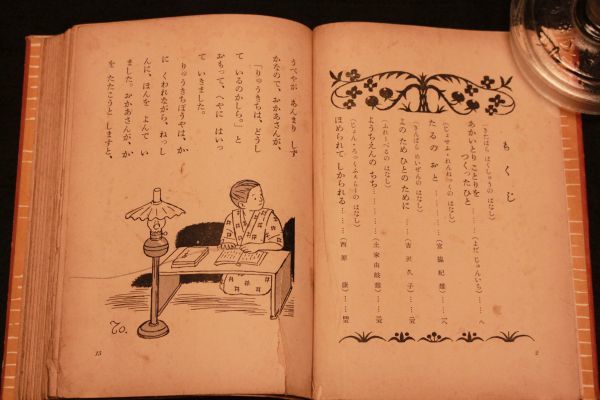 もくじ
(きたはら はくしゅうの はなし)
あかいとりことりを
つくったひと……(よだ じゅんいち)……
(じょせふ・れんねっくの はなし)
たるの おと……(宮脇紀雄)……
(きんばら めいぜんの はなし)
よのため ひとのために……(吉沢久子)……
(ふれーべるの はなし)
ようちえんの ちち……(土家由岐雄)……
(じょん・ろっくふぇらーの はなし)
ほめられて しかられる……(西原 康)……
2
うべやが あんまり しず
かなので、おかあさんが、
「りゅうきちは、どうし
て いるのかしら。」と
おもって、へやに はいっ
て いきました。
りゅうきちぼうやは、か
に くわれながら、ねっし
んに、ほんを よんで い
ました。おかあさんが、か
を たたこうと しますと、
To.
15